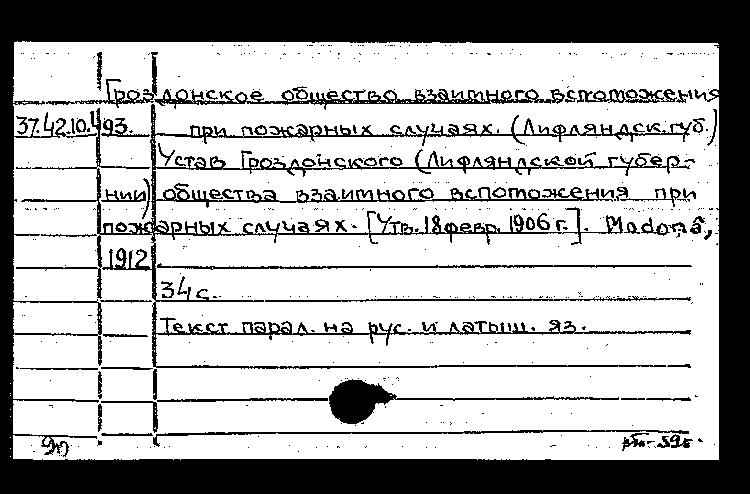 Гроздонское общество взаимного вспоможения
37.42.10.493. при пожарных случаях. (Лифляндск.губ.)
Устав Гроздонского (Лифляндской губер-
нии) общества взаимного вспоможения при
пожарных случаях. [Утв. 18 февр. 1906 г.]. Madonâ,
1912
34 с.
Текст парал. на рус. и латыш. яз.